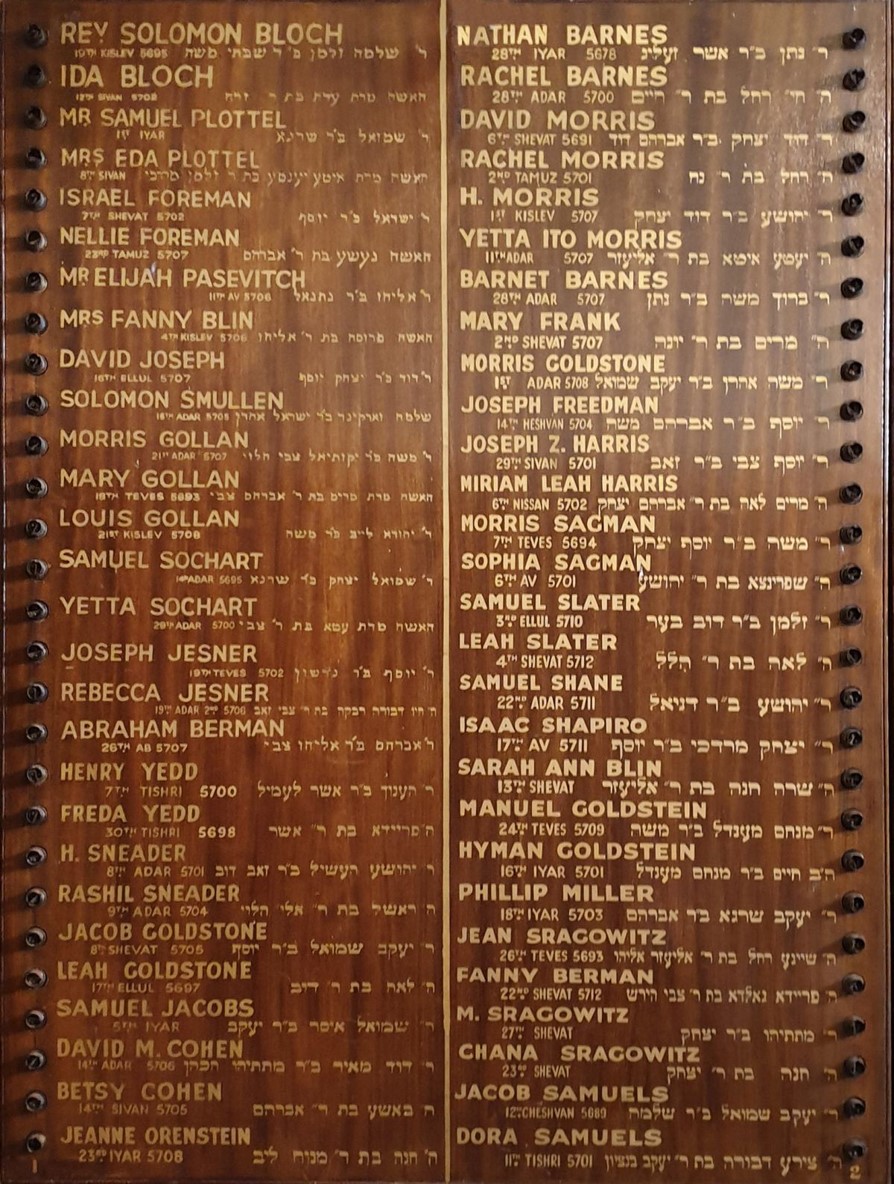 REV SOLOMON BLOCH
19TH KISLEV 5695 ר' שלמה זלמן ב"ר שבתי משה
IDA BLOCH
12TH SIVAN 5702 האשה מרת עדת בת ר'
MR SAMUEL PLOTTEL
1ST IYAR ר' שמואל ב"ר שרגא
MRS EDA PLOTTEL
8TH SIVAN האשה מרת איטע יענטע בת ר' זלמן מרדכי
ISRAEL FOREMAN
7TH SHEVAT 5702 ר' ישראל ב"ר יוסף
NELLIE FOREMAN
23RD TAMUZ 5707 האשה נעשע בת ר' אברהם
MR ELIJAH PASEVITCH
11TH AV 5706 ר' אליהו ב"ר נתנאל
MRS FANNY BLIN
4TH KISLEV 5706 האשה פרומה בת ר' אליהו
DAVID JOSEPH
16TH ELLUL 5707 ר' דוד ב"ר יצחק יוסף
SOLOMON SMULLEN
16TH ADAR 5705 שלמה ב"ר ישראל אהרן
MORRIS GOLLAN
21ST ADAR 5707 ר' משה ב"ר יקותיאל צבי הלוי
MARY GOLLAN
18TH TEVES 5693 האשה מרת מרים בת ר' אברהם צבי
LOUIS GOLLAN
21ST KISLEV 5708 ר' יהודא לייב ב"ר משה
SAMUEL SOCHART
ADAR 5695 ר' שמואל יצחק ב"ר שרגא
YETTA SOCHART
29TH ADAR 5700 האשה מרת עטא בת ר' צבי
JOSEPH JESNER
19TH TEVES 5702 ר' יוסף ב"ר גרשון
REBECCA JESNER
19TH ADAR 2ND 5706 דבורה רבקה בת ר' צבי זאב
ABRAHAM BERMAN
26TH AB 5707 ר' אברהם ב"ר אליהו צבי
HENRY YEDD
7TH TISHRI 5700 ר' העניך ב"ר אשר לעמיל
FREDA YEDD
30TH TISHRI 5698 ה' פריידא בת ר' אשר
H. SNEADER
8TH ADAR 5701 ר' יהושע העשיל ב"ר זאב דוב
RASHIL SNEADER
9TH ADAR 5704 ה' ראשל בת ר' אלי הלוי
JACOB GOLDSTONE
8TH SHEVAT 5705 ר' יעקב שמואל ב"ר יוסף
LEAH GOLDSTONE
17TH ELLUL 5697 ה' לאה בת ר' דוב
SAMUEL JACOBS
5TH IYAR ר' שמואל איסר ב"ר יעקב
DAVID M. COHEN
14TH ADAR 5706 ר' דוד מאיר ב"ר מתתיהו הכהן
BETSY COHEN
14TH SIVAN 5705 ה באשע בת ר' אברהם
JEANNE ORENSTEIN
23RD IYAR 5708 ה' חנה בת ר' מניח ליב
1
NATHAN BARNES
28TH IYAR 5678 ר' נתן ב"ר אשר זעליג
RACHEL BARNES
28TH ADAR 5700 ה' חי' רחל בת ר' חיים
DAVID MORRIS
6TH SHEVAT 5691 ר' דוד יצחק ב"ר אברהם דוד
RACHEL MORRIS
2ND TAMUZ 5701 ה' רחל בת ר' נח
H. MORRIS
1ST KISLEV 5707 ר' יהושע ב"ר דוד יצחק
YETTA ITO MORRIS
11TH ADAR 5707 ה' יעטע איטא בת ר' אליעזר
BARNET BARNES
28TH ADAR 5707 ר' ברוך משה ב"ר נתן
MARY FRANK
2ND SHEVAT 5707 ה' מרים בת ר' יונה
MORRIS GOLDSTONE
1ST ADAR 5708 ר' משה אהרן ב"ר יעקב שמואל
JOSEPH FREEDMAN
14TH HESHVAN 5704 ר' יוסף ב"ר אברהם משה
JOSEPH Z. HARRIS
29TH SIVAN 5701 ר' יוסף צבי ב"ר זאב
MIRIAM LEAH HARRIS
6TH NISSAN 5702 ה' מרים לאה בת ר' אברהם יצחק
MORRIS SAGMAN
7TH TEVES 5694 ר' משה ב"ר יוסף יצחק
SOPHIA SAGMAN
6TH AV 5701 ה' שפרינצא בת ר' יהושע
SAMUEL SLATER
3RD ELLUL 5710 ר' זלמן ב"ר דוב בער
LEAH SLATER
4TH SHEVAT 5712 ה' לאה בת ר' הלל
SAMUEL SHANE
22ND ADAR 5711 ר' יהושע ב"ר דניאל
ISAAC SHAPIRO
17TH AV 5711 ר' יצחק מרדכי ב"ר יוסף
SARAH ANN BLIN
13TH SHEVAT ה' שרה חנה בת ר' אליעזר
MANUEL GOLDSTEIN
24TH TEVES 5709 ר' מנחם מענדל ב"ר משה
HYMAN GOLDSTEIN
16TH IYAR 5701 חיים ב"ר מנחם מענדל
PHILLIP MILLER
18TH IYAR 5703 ר' יעקב שרגא ב"ר אברהם
JEAN SRAGOWITZ
26TH TEVES 5693 ה' שיינע רחל בת ר' אליעזר אליהו
FANNY BERMAN
22ND SHEVAT 5712 ה' פריידא גאלדא בת ר' צבי הירש
M. SRAGOWITZ
27TH SHEVAT ר' מתתיהו ב"ר יצחק
CHANA SRAGOWITZ
23RD SHEVAT ה' חנה בת ר' יצחק
JACOB SAMUELS
12TH CHESHVAN 5689 ר' יעקב שמואל ב"ר שלמה
DORA SAMUELS
11TH TISHRI 5701 ה' צירע דבורה בת ר' יעקב בנציון
2